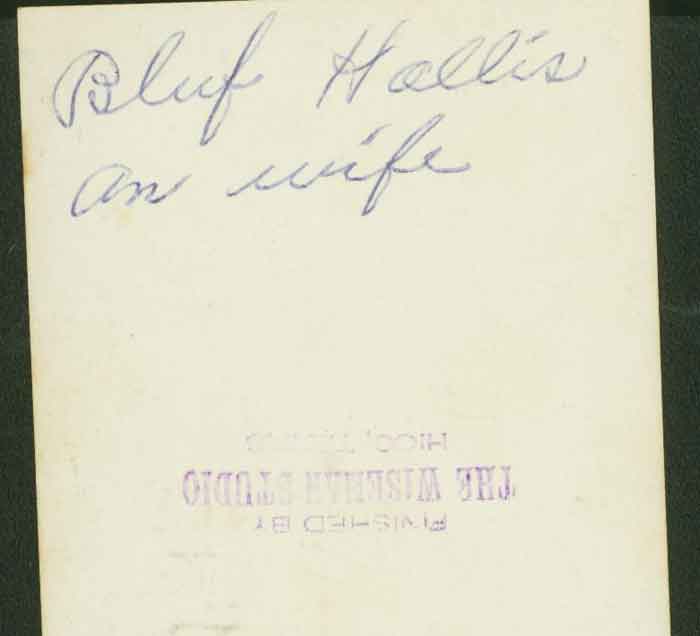 Bluf Hollis
an wife
FINISHED BY
THE WISEMAN STUDIO
HICO, TEXAS